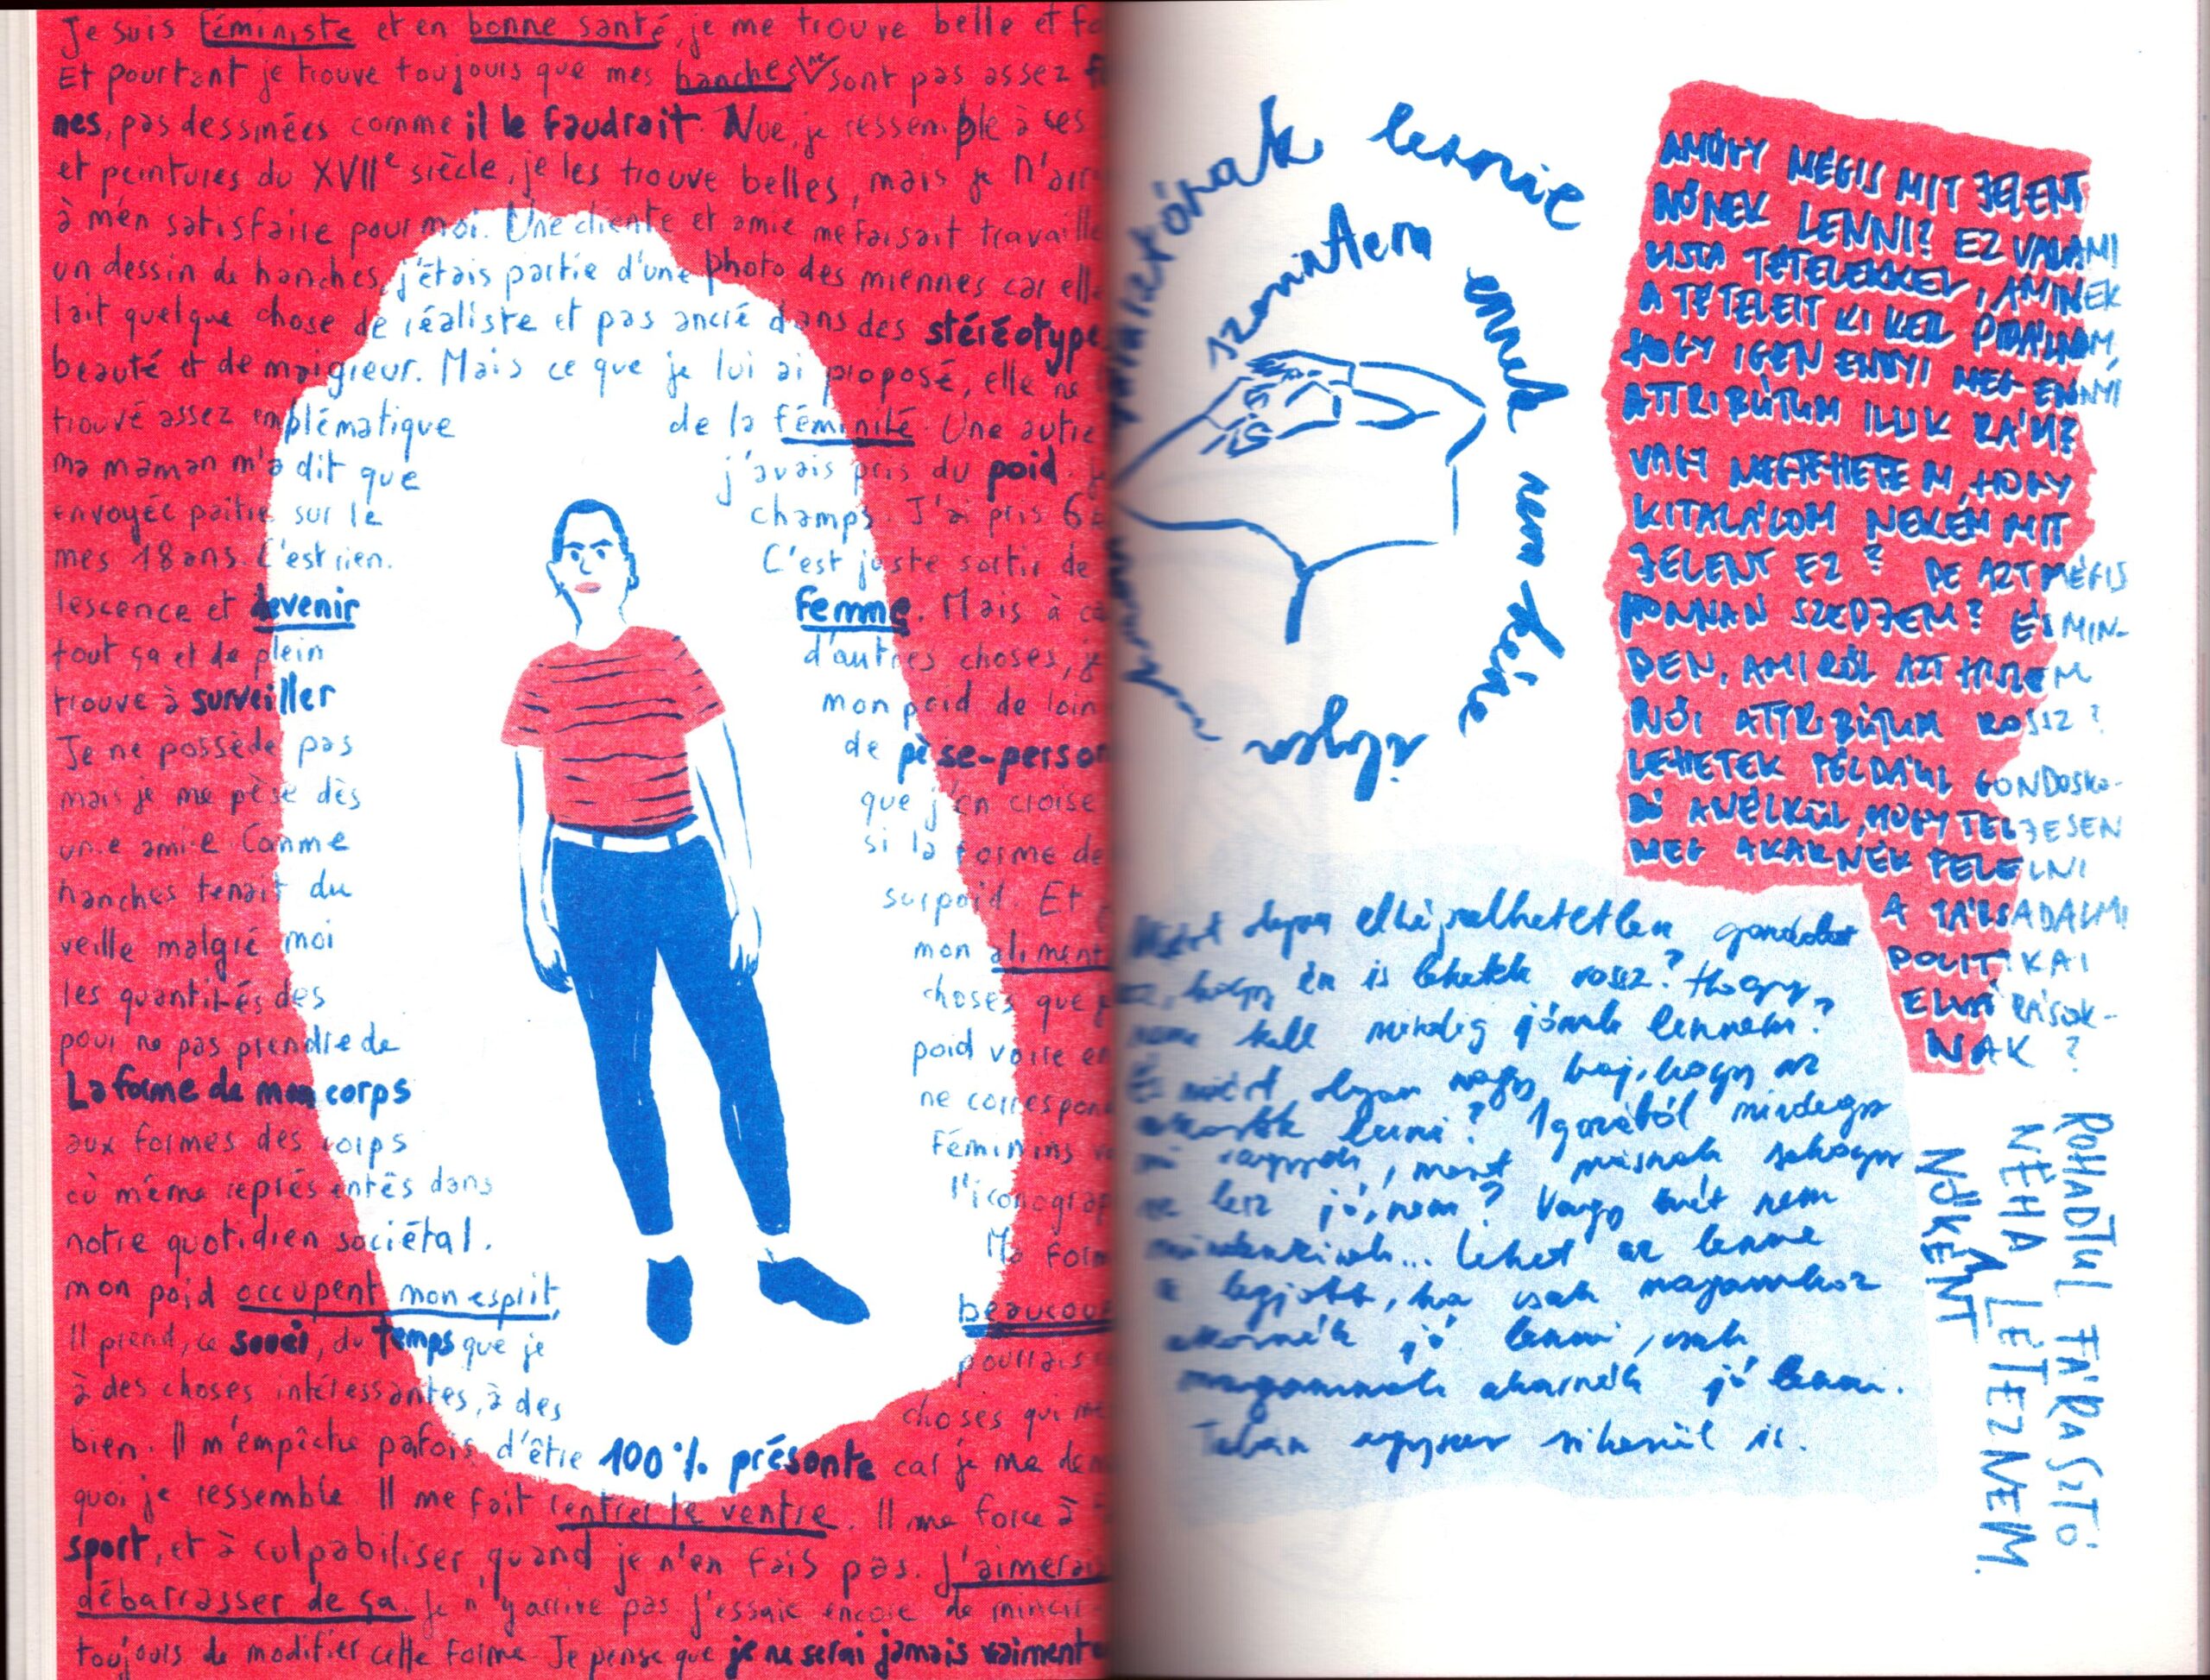 Je suis féministe et en bonne santé, je me trouve belle et fo
Et pourtant je trouve toujours que mes hanches ne sont pas assez f
nes, pas dessinées comme il le faudrait. Nue, je ressemble à ces
et peintures du XVIIe siècle, je les trouve belles, mais je n'arr
à m'en satisfaire pour moi. Une cliente et amie me faisait travaille
un dessin de hanches, j'étais partie d'une photo des miennes car elle
lait quelque chose de réaliste et pas ancré dans des stéréotype
beauté et de maigreur. Mais ce que je lui ai proposé, elle ne
trouvé assez emblématique de la féminité. Une autre
ma maman m'a dit que j'avais pris du poid. J
envoyée paitre sur le champs. J'ai pris 6
mes 18 ans. C'est rien. C'est juste sortir de
lescence et devenir femme. Mais à ca
tout ça et de plein d'autres choses, je
trouve à surveiller mon poid de loin
Je ne possède pas de pèse-person
mais je me pèse dès que j'en croise
une amie. Comme si la forme de
hanches tenait du surpoid. Et
veille malgré moi mon aliment
les quantités des choses que
pour ne pas prendre de poid voire en
La forme de mon corps ne correspon
aux formes des corps féminins
où même représentés dans l'iconograp
notre quotidien sociétal. Ma form
mon poid occupent mon esprit, beaucoup
Il prend, ce souci, du temps que je pourrais
à des choses intéressantes, à des choses qui me
bien. Il m'empêche pafois d'être 100% présente car je me dem
quoi je ressemble. Il me fait rentrer le ventre. Il me force à
sport, et à culpabiliser quand je n'en fais pas. J'aimerai
débarrasser de ça. Je n'y arrive pas. J'essaie encore de mincir
toujours de modifier cette forme. Je pense que je ne serai jamais vraiment
szerintem ennek nem kéne
lennie
ilyen
AMÚGY MÉGIS MIT JELENT
NŐNEK LENNI? EZ VALAMI
LISTA TÉTELEKKEL, AMINEK
A TÉTELEIT KI KELL PIPÁLNOM,
HOGY IGEN ENNYI MEG ENNYI
ATTRIBÚTUM ILLIK RÁM?
VAGY MEGTEHETEM, HOGY
KITALÁLOM NEKEM MIT
JELENT EZ? DE AZT MÉGIS
HONNAN SZEDJEM? ÉS MIN-
DEN, AMIRŐL AZT HISZEM
NŐI ATTRIBÚTUM ROSSZ?
LEHETEK PÉLDÁUL GONDOSKO-
DÓ ANÉLKÜL, HOGY TELJESEN
MEG AKARNÉK FELELNI
A TÁRSADALMI
POLITIKAI
ELVÁRÁSOK-
NAK?
Miért olyan elképzelhetetlen gondolat
az, hogy én is lehetek rossz? Hogy
nem kell mindig jónak lennem?
És miért olyan nagy baj, hogy az
akarok lenni? Igazából mindegy
mi vagyok, mert másnak sehogy
se lesz jó, nem? Vagy hát nem
mindenkinek... Lehet az lenne
a legjobb, ha csak magamhoz
akarnék jó lenni, csak
magamnak akarnék jó lenni.
Talán egyszer sikerül is.
ROHADTUL FÁRASZTÓ
NÉHA LÉTEZNEM
NŐKÉNT.